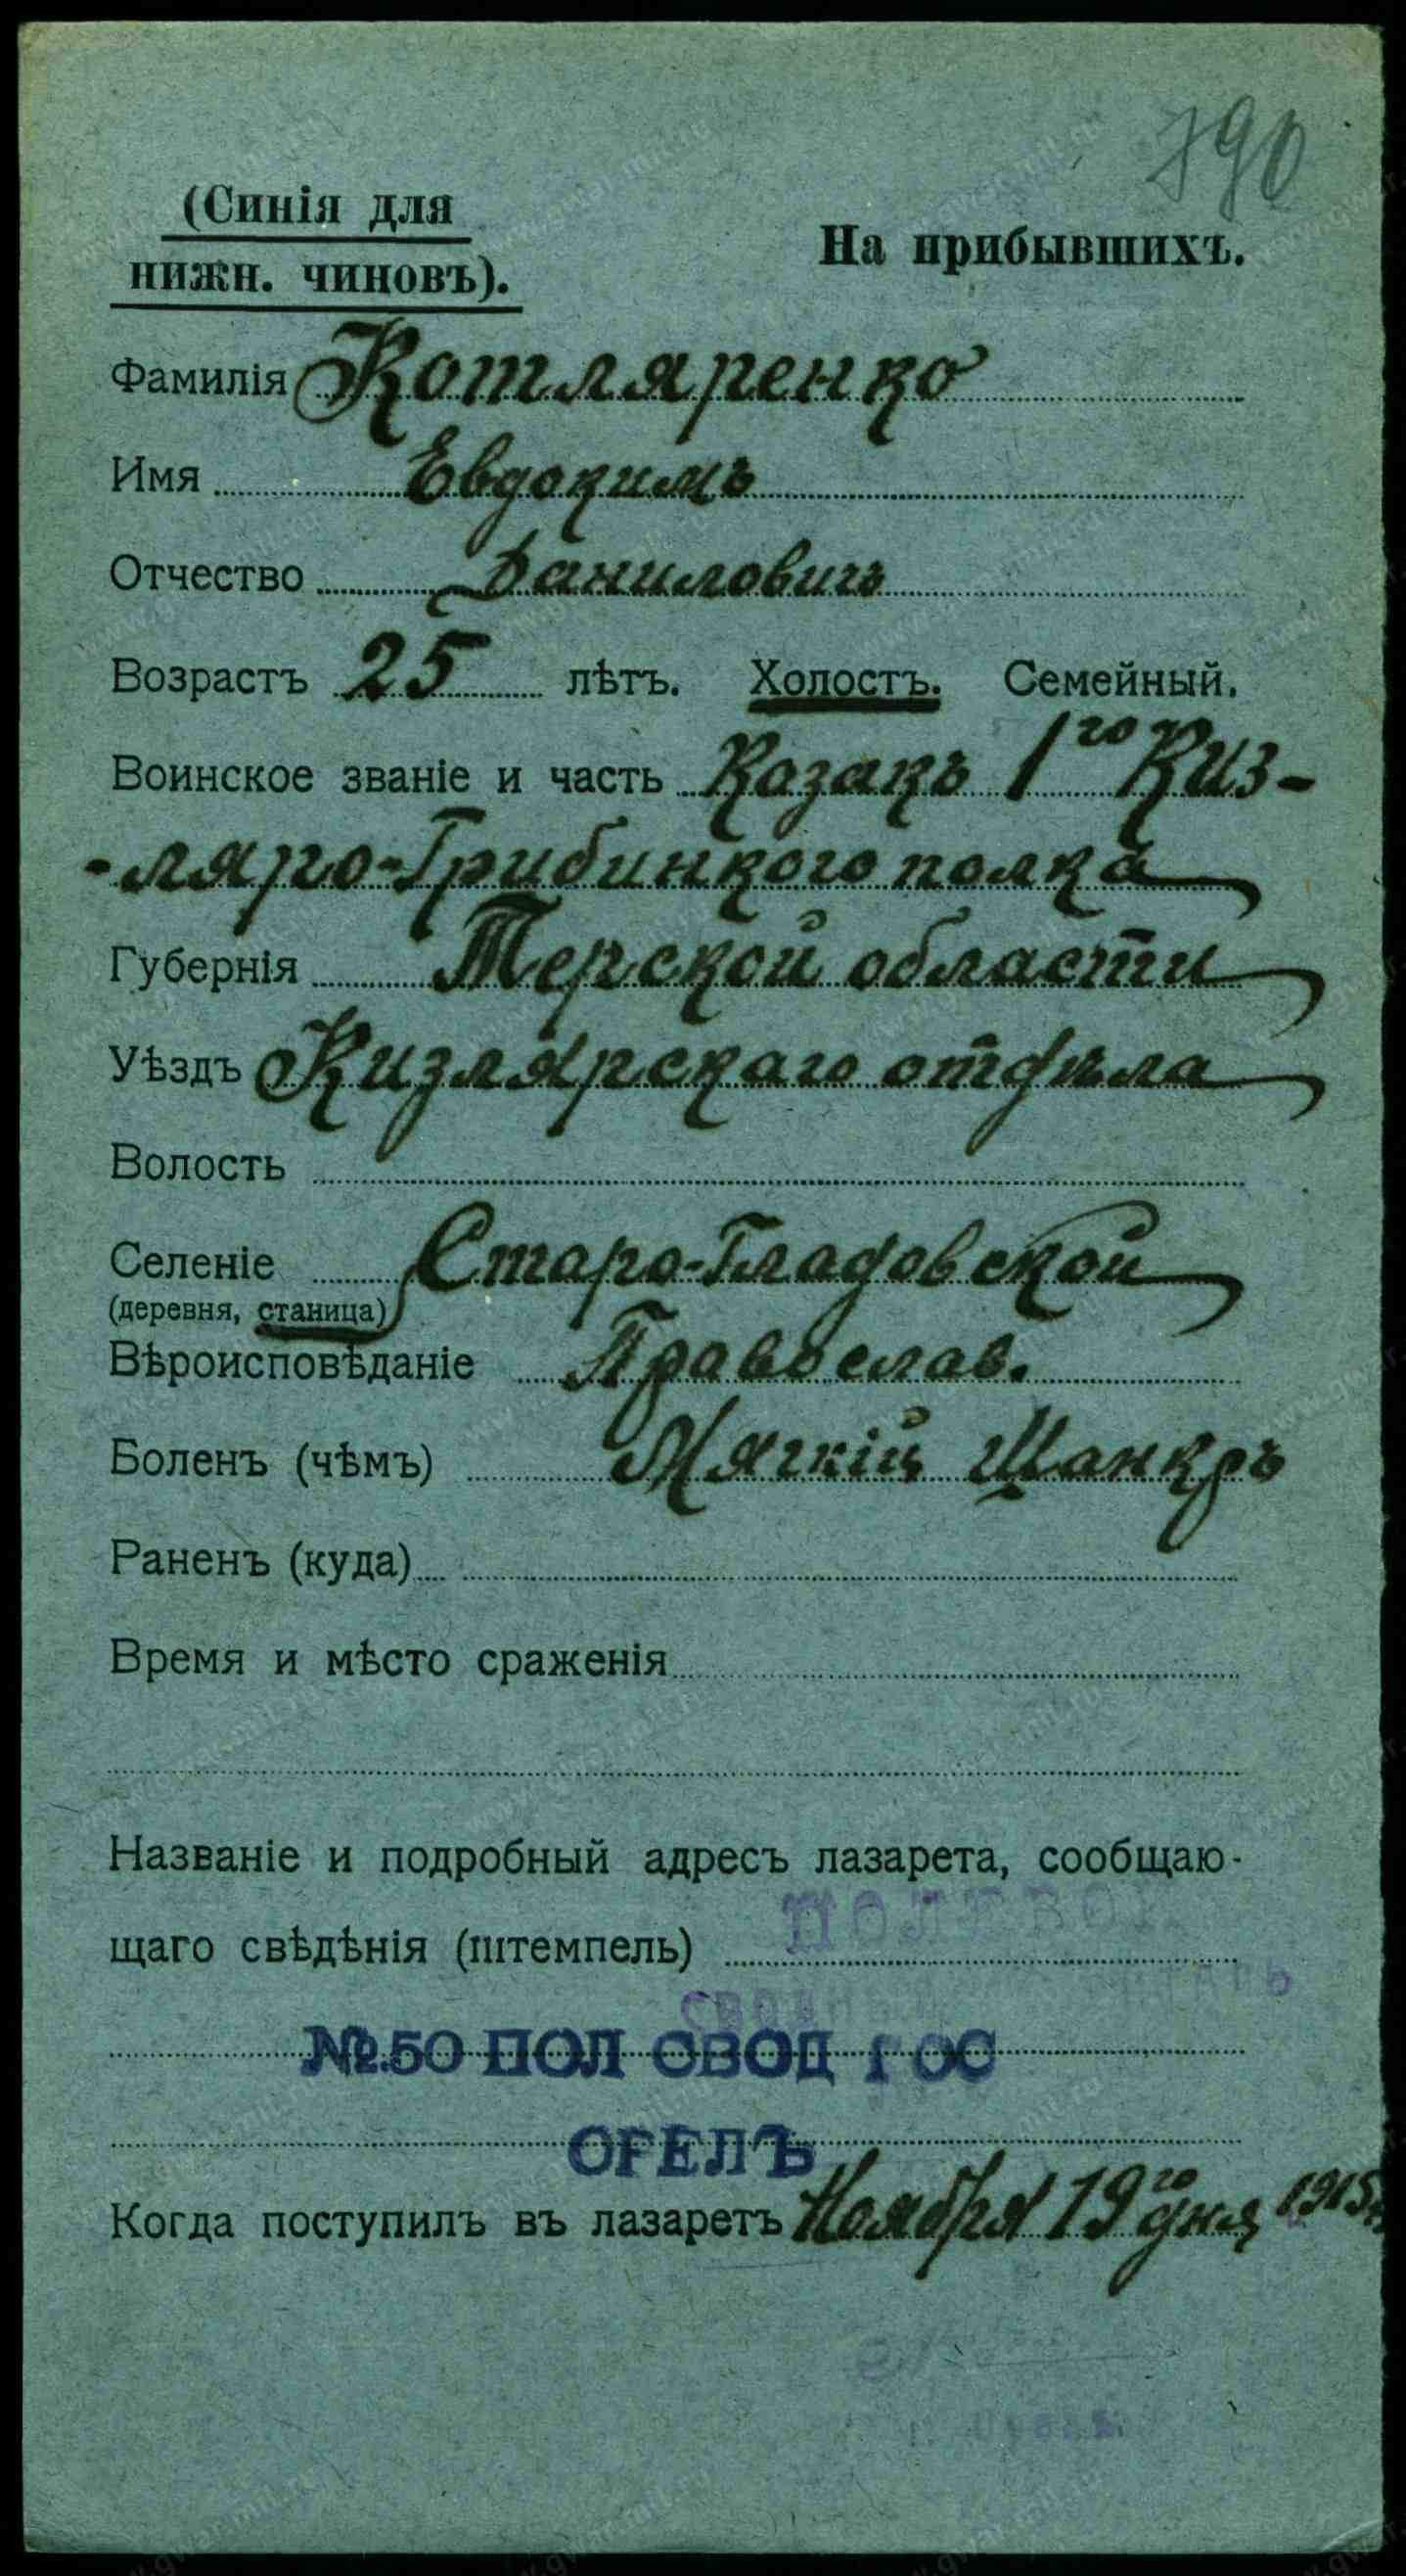 790
(Синія для
нижн. чиновъ).
На прибывшихъ.
Фамилія Котляренко
Имя Евдокимъ
Отчество Даниловичъ
Возрастъ 25 лѣтъ. Холостъ. Семейный.
Воинское званіе и часть Казакъ 1го Киз-
-ляро-Грибинкого полка
Губернія Терской области
Уѣздъ Кизлярскаго отдѣла
Волость
Селеніе Старо-Гладовской
(деревня, станица)
Вѣроисповѣданіе Православ.
Боленъ (чѣмъ) Мягкій Щанкръ
Раненъ (куда)
Время и мѣсто сраженія
Названіе и подробный адресъ лазарета, сообщаю-
щаго свѣдѣнія (штемпель)
№.50 ПОЛ СВОД ГОС
ОРЕЛЪ
Когда поступилъ въ лазаретъ Ноября 19го дня 1915г.